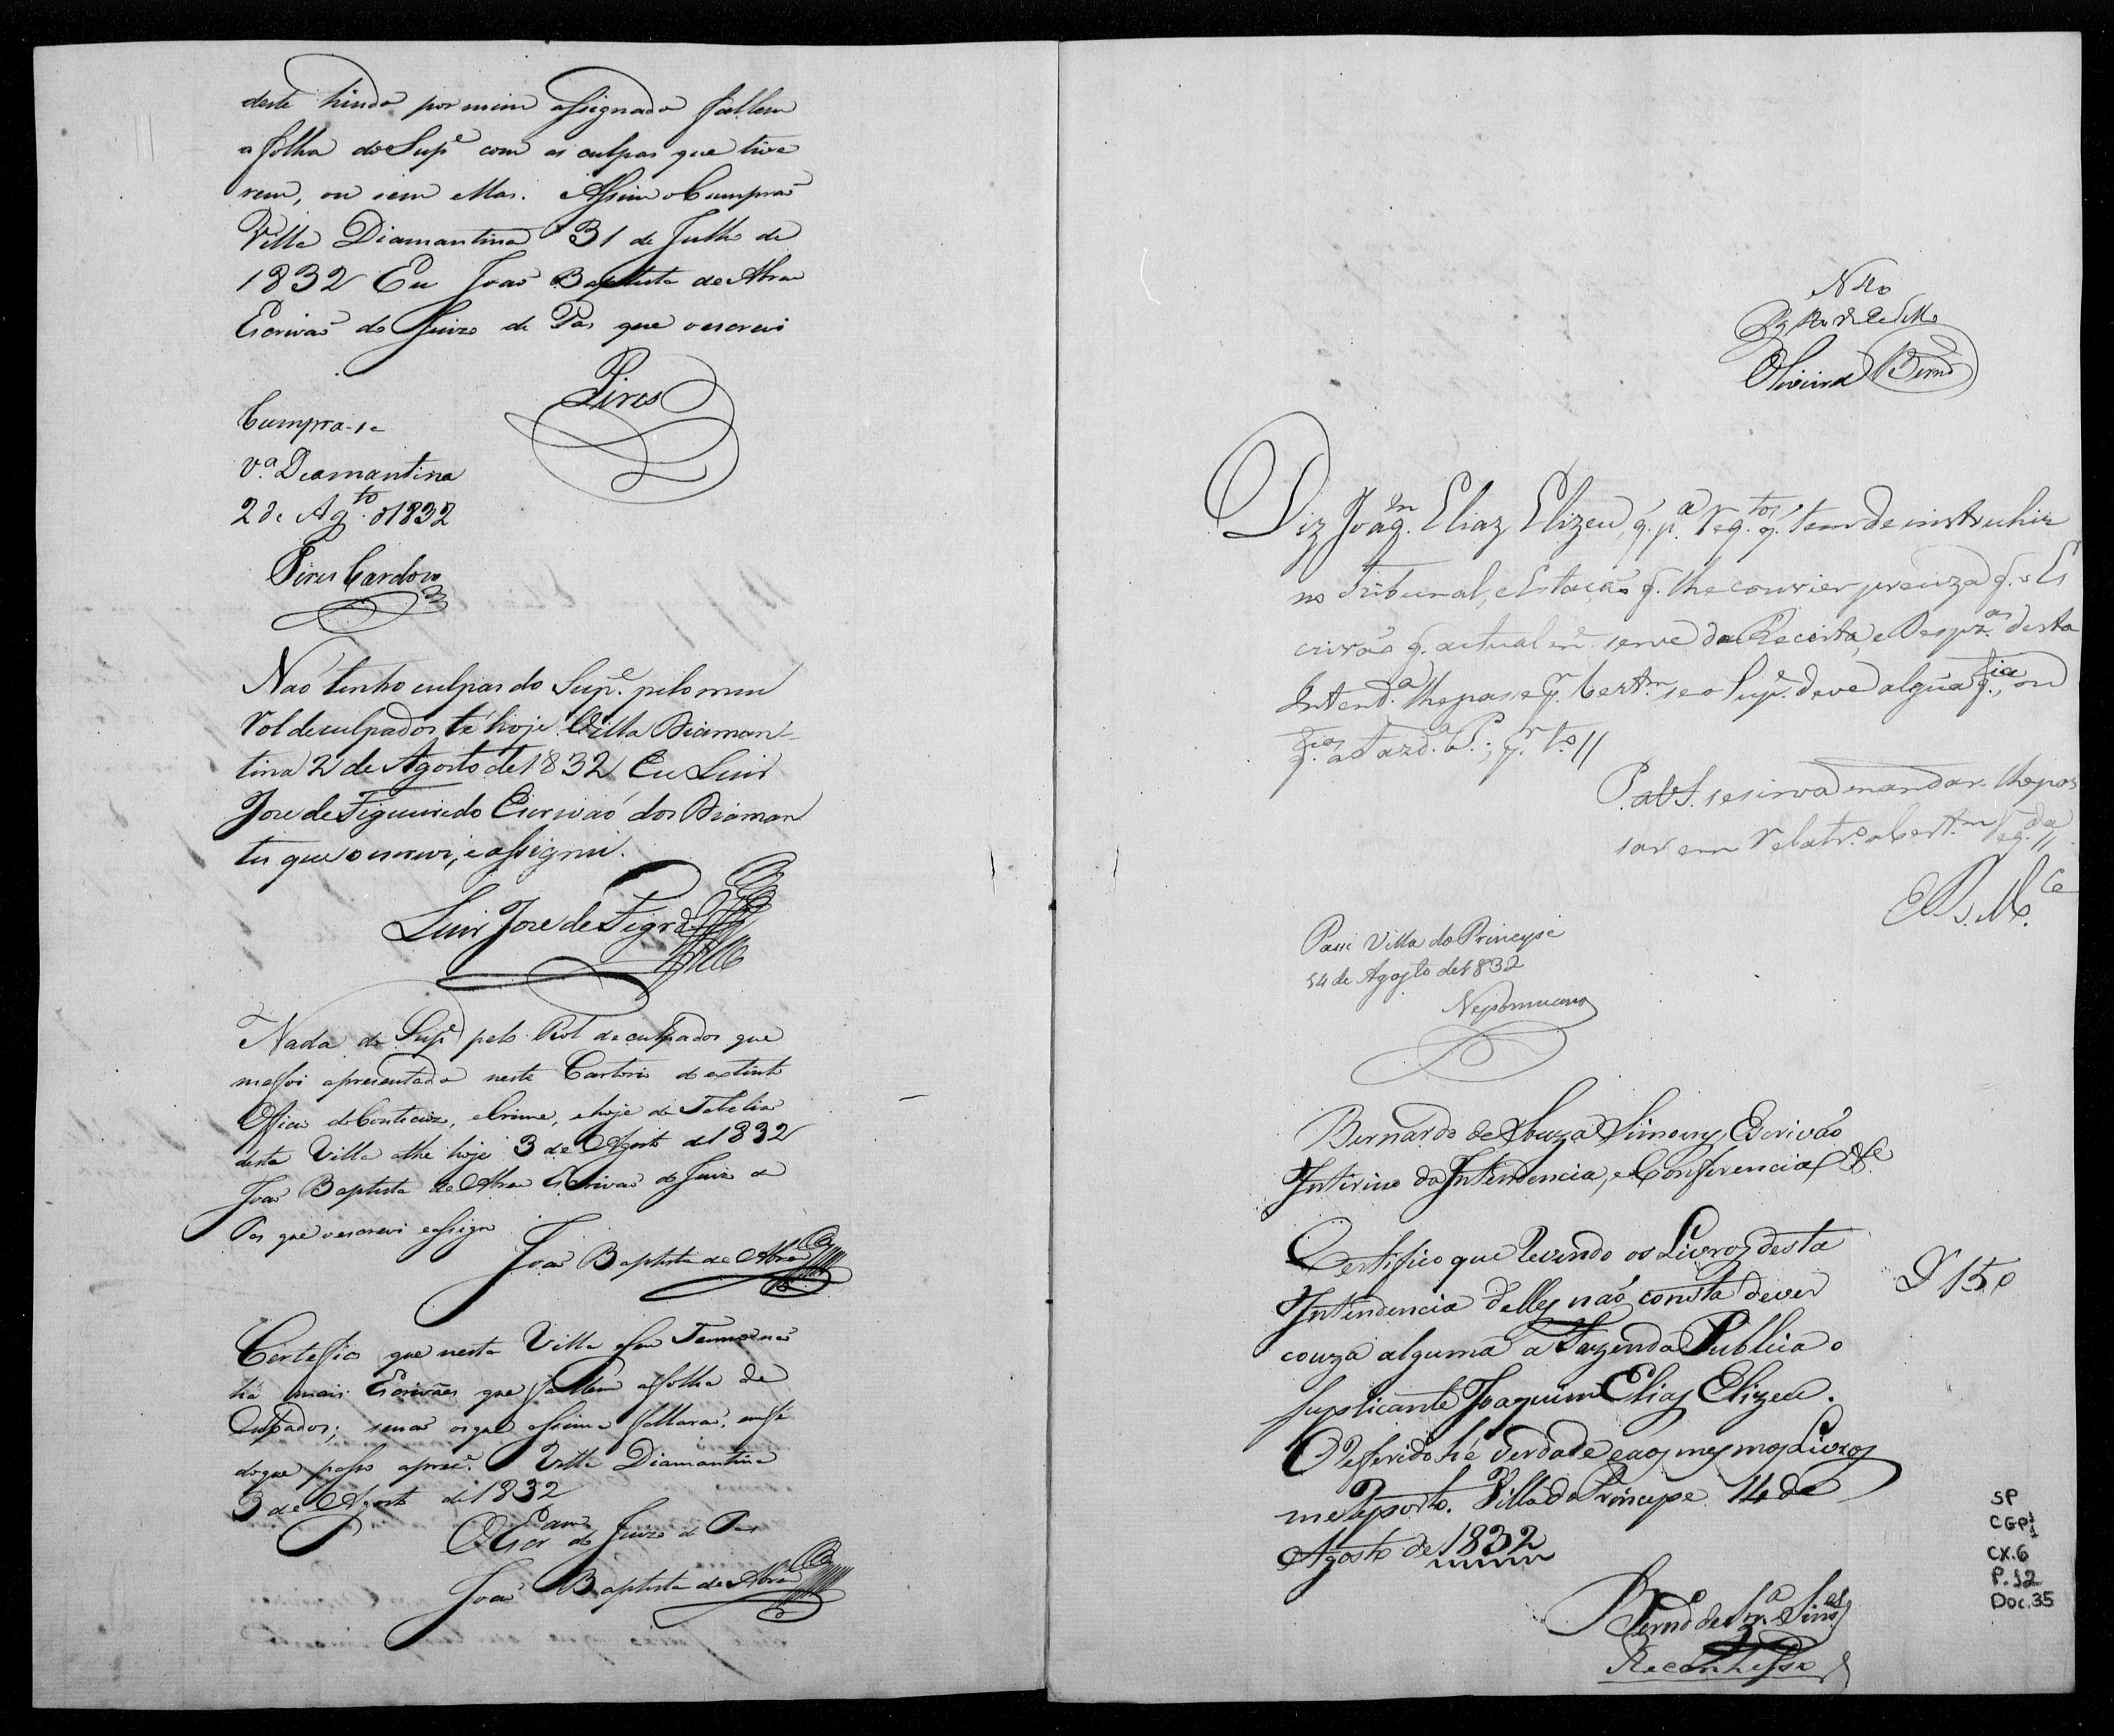 deste hindo por mim assignado fallem
a folha do Supe com as culpas que tive
rem, ou sem ellas. Assim o Cumprão
Villa Diamantina 31 de Julho de
1832 Eu João Baptista de Abreu
Escrivão do Juizo de Pas que o escrevi
Pires
Cumpra-se
Va. Diamantina
2 de Agto. d 1832
Pires Cardoso
Não tenho culpas do Supe. pelo meu
Rol de culpados té hoje. Villa Diaman-
tina 2 de Agosto de 1832 Eu Luis
Jose de Figueiredo Escrivaó dos Diaman
tes que o escrevi, e assignei.
Luis Jose de Figrdo
Nada do Supe pelo Rol de culpados que
me foi apresentado neste Cartorio do extinto
Officio do Contecioz, e Crime, e hoje de Tabeliaõ
desta Villa athe hoje 3 de Agosto de 1832
João Baptista de Abreu Escrivão do Juizo de
Pas que o escrevi e assigno
João Baptista de Abreu
Certefico que nesta Villa e seu Termo não
há mais Escrivães que fallem a folha de
Culpados; senão os que assima fallarão, em fé
do que passo a prezte. Villa Diamantina
3 de Agosto de 1832
O Escam do Juizo de Pas
João Baptista de Abreu
No
Oliveira Berndo
Diz Joaqm. Eliaz Elizeu, q. pa. Reqtos. q. tem de instruhir
no Tribunal, e Estação q. lhe convier preciza q. o Es
crivão q. actualme serve da Receita, e Despzas. desta
Intenda. lhe passe pr. Certm. se o Supe. deve algũa qia., ou
qias. a Fazda. P.; pr. to. //
P. a V.S. se sirva mandar lhe pas
sar em relato. a Certm. Reqda. //
E R. Mce.
Passe Villa do Principe
14 de Agosto de 1832
Nepomuceno
Bernardo de Souza Simoens Escrivão
Interino da Intendencia, e Conferencia &e.
Certifico que revendo os Livros desta
Intendencia delles não consta dever
couza alguma a Fazenda Publica o
suplicante Joaquim Elias Elizeu.
O Referido hé verdade e aos mesmos Livros
me reporto. Villa do Principe 14 de
Agosto de 1832
D 150
Berndo de Sza. Simes
Reconhesso
SP
CGP1
1
CX.6
P.12
Doc.35